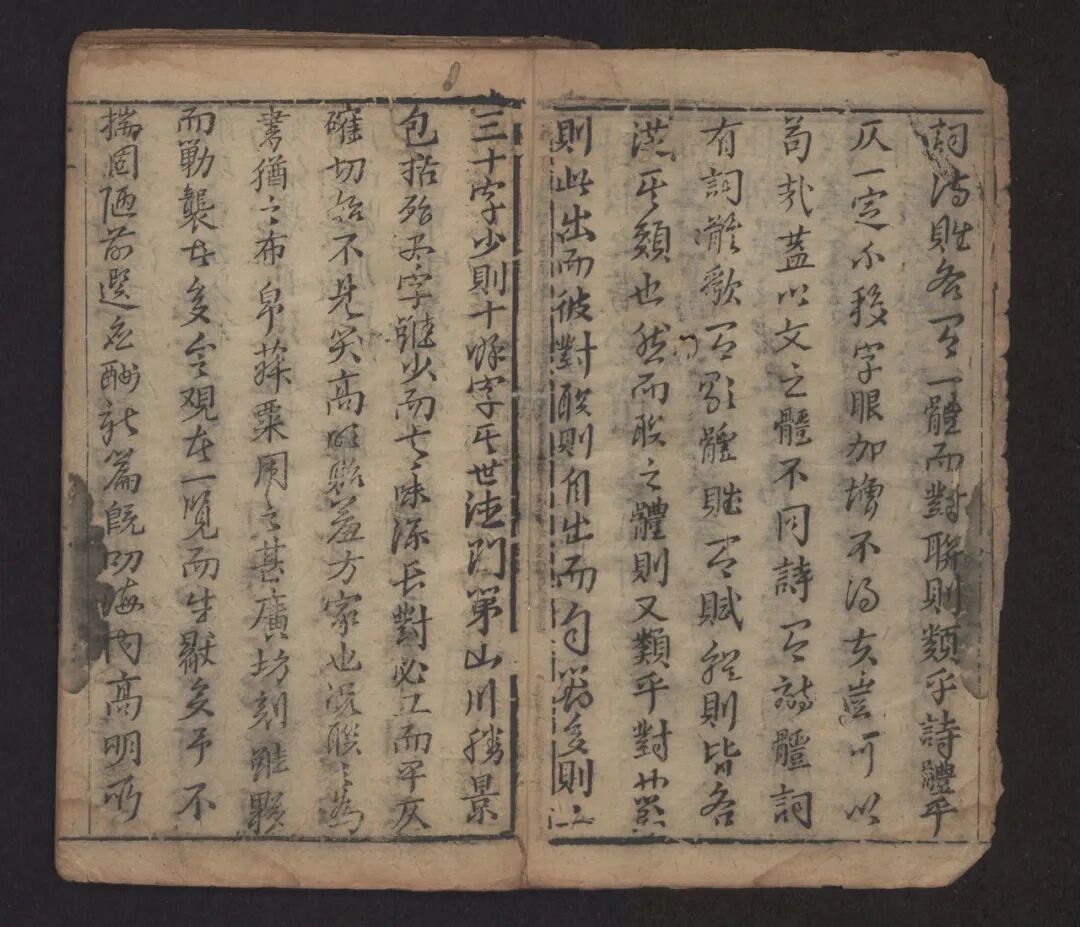 詞詩賦各有一體而對聯則類乎詩體平
仄一定不移字眼加增不得夫豈可以
苟哉蓋以文之體不同詩有詩體詞
有詞體歌有歌體賦有賦體則皆各
從其類也然而聯之體則又類乎對
則此出而彼對聯則自出而自多則二
三十字少則十餘字其世德門第山川勝景
包括殆尽字雖少而意味深長對必工而平仄
確切始不見笑高明貽羞方家也況聯之為
書猶之布帛菽粟用之甚廣坊刻雖夥
而勦襲者多令觀者一覽而生厭矣予不
揣固陋前選應酬新篇既叨海内高明所